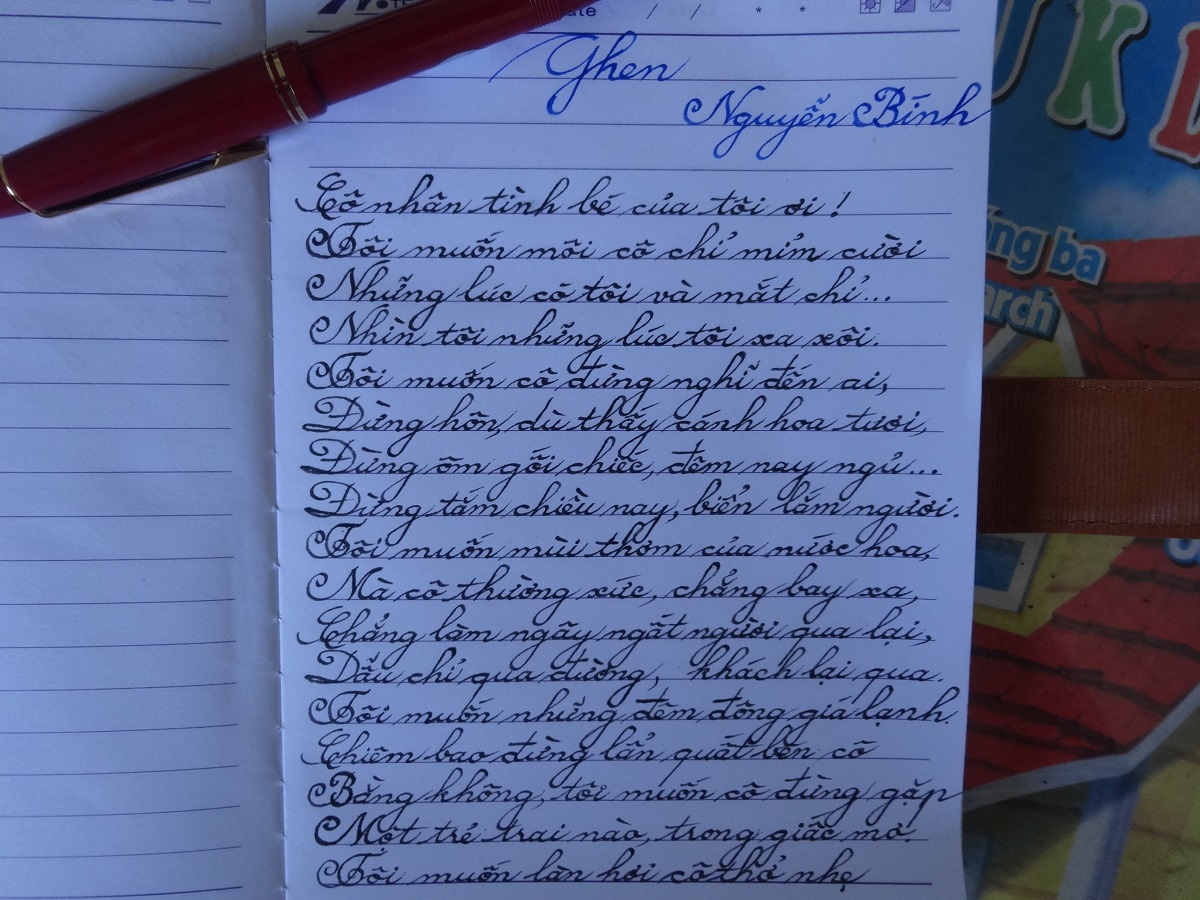 ate / / * *
Ghen
Nguyễn Bính
UK
ng ba
arch
Cô nhân tình bé của tôi ơi !
Tôi muốn môi cô chỉ mỉm cười
Những lúc có tôi và mắt chỉ...
Nhìn tôi những lúc tôi xa xôi.
Tôi muốn cô đừng nghĩ đến ai,
Đừng hôn, dù thấy cánh hoa tươi,
Đừng ôm gối chiếc, đêm nay ngủ...
Đừng tắm chiều nay, biển lắm người.
Tôi muốn mùi thơm của nước hoa,
Mà cô thường xức, chẳng bay xa,
Chẳng làm ngây ngất người qua lại,
Dẫu chỉ qua đường, khách lại qua.
Tôi muốn những đêm đông giá lạnh.
Chiêm bao đừng lẩn quất bên cô
Bằng không, tôi muốn cô đừng gặp
Một trẻ trai nào, trong giấc mơ.
Tôi muốn làn hơi cô thở nhẹ